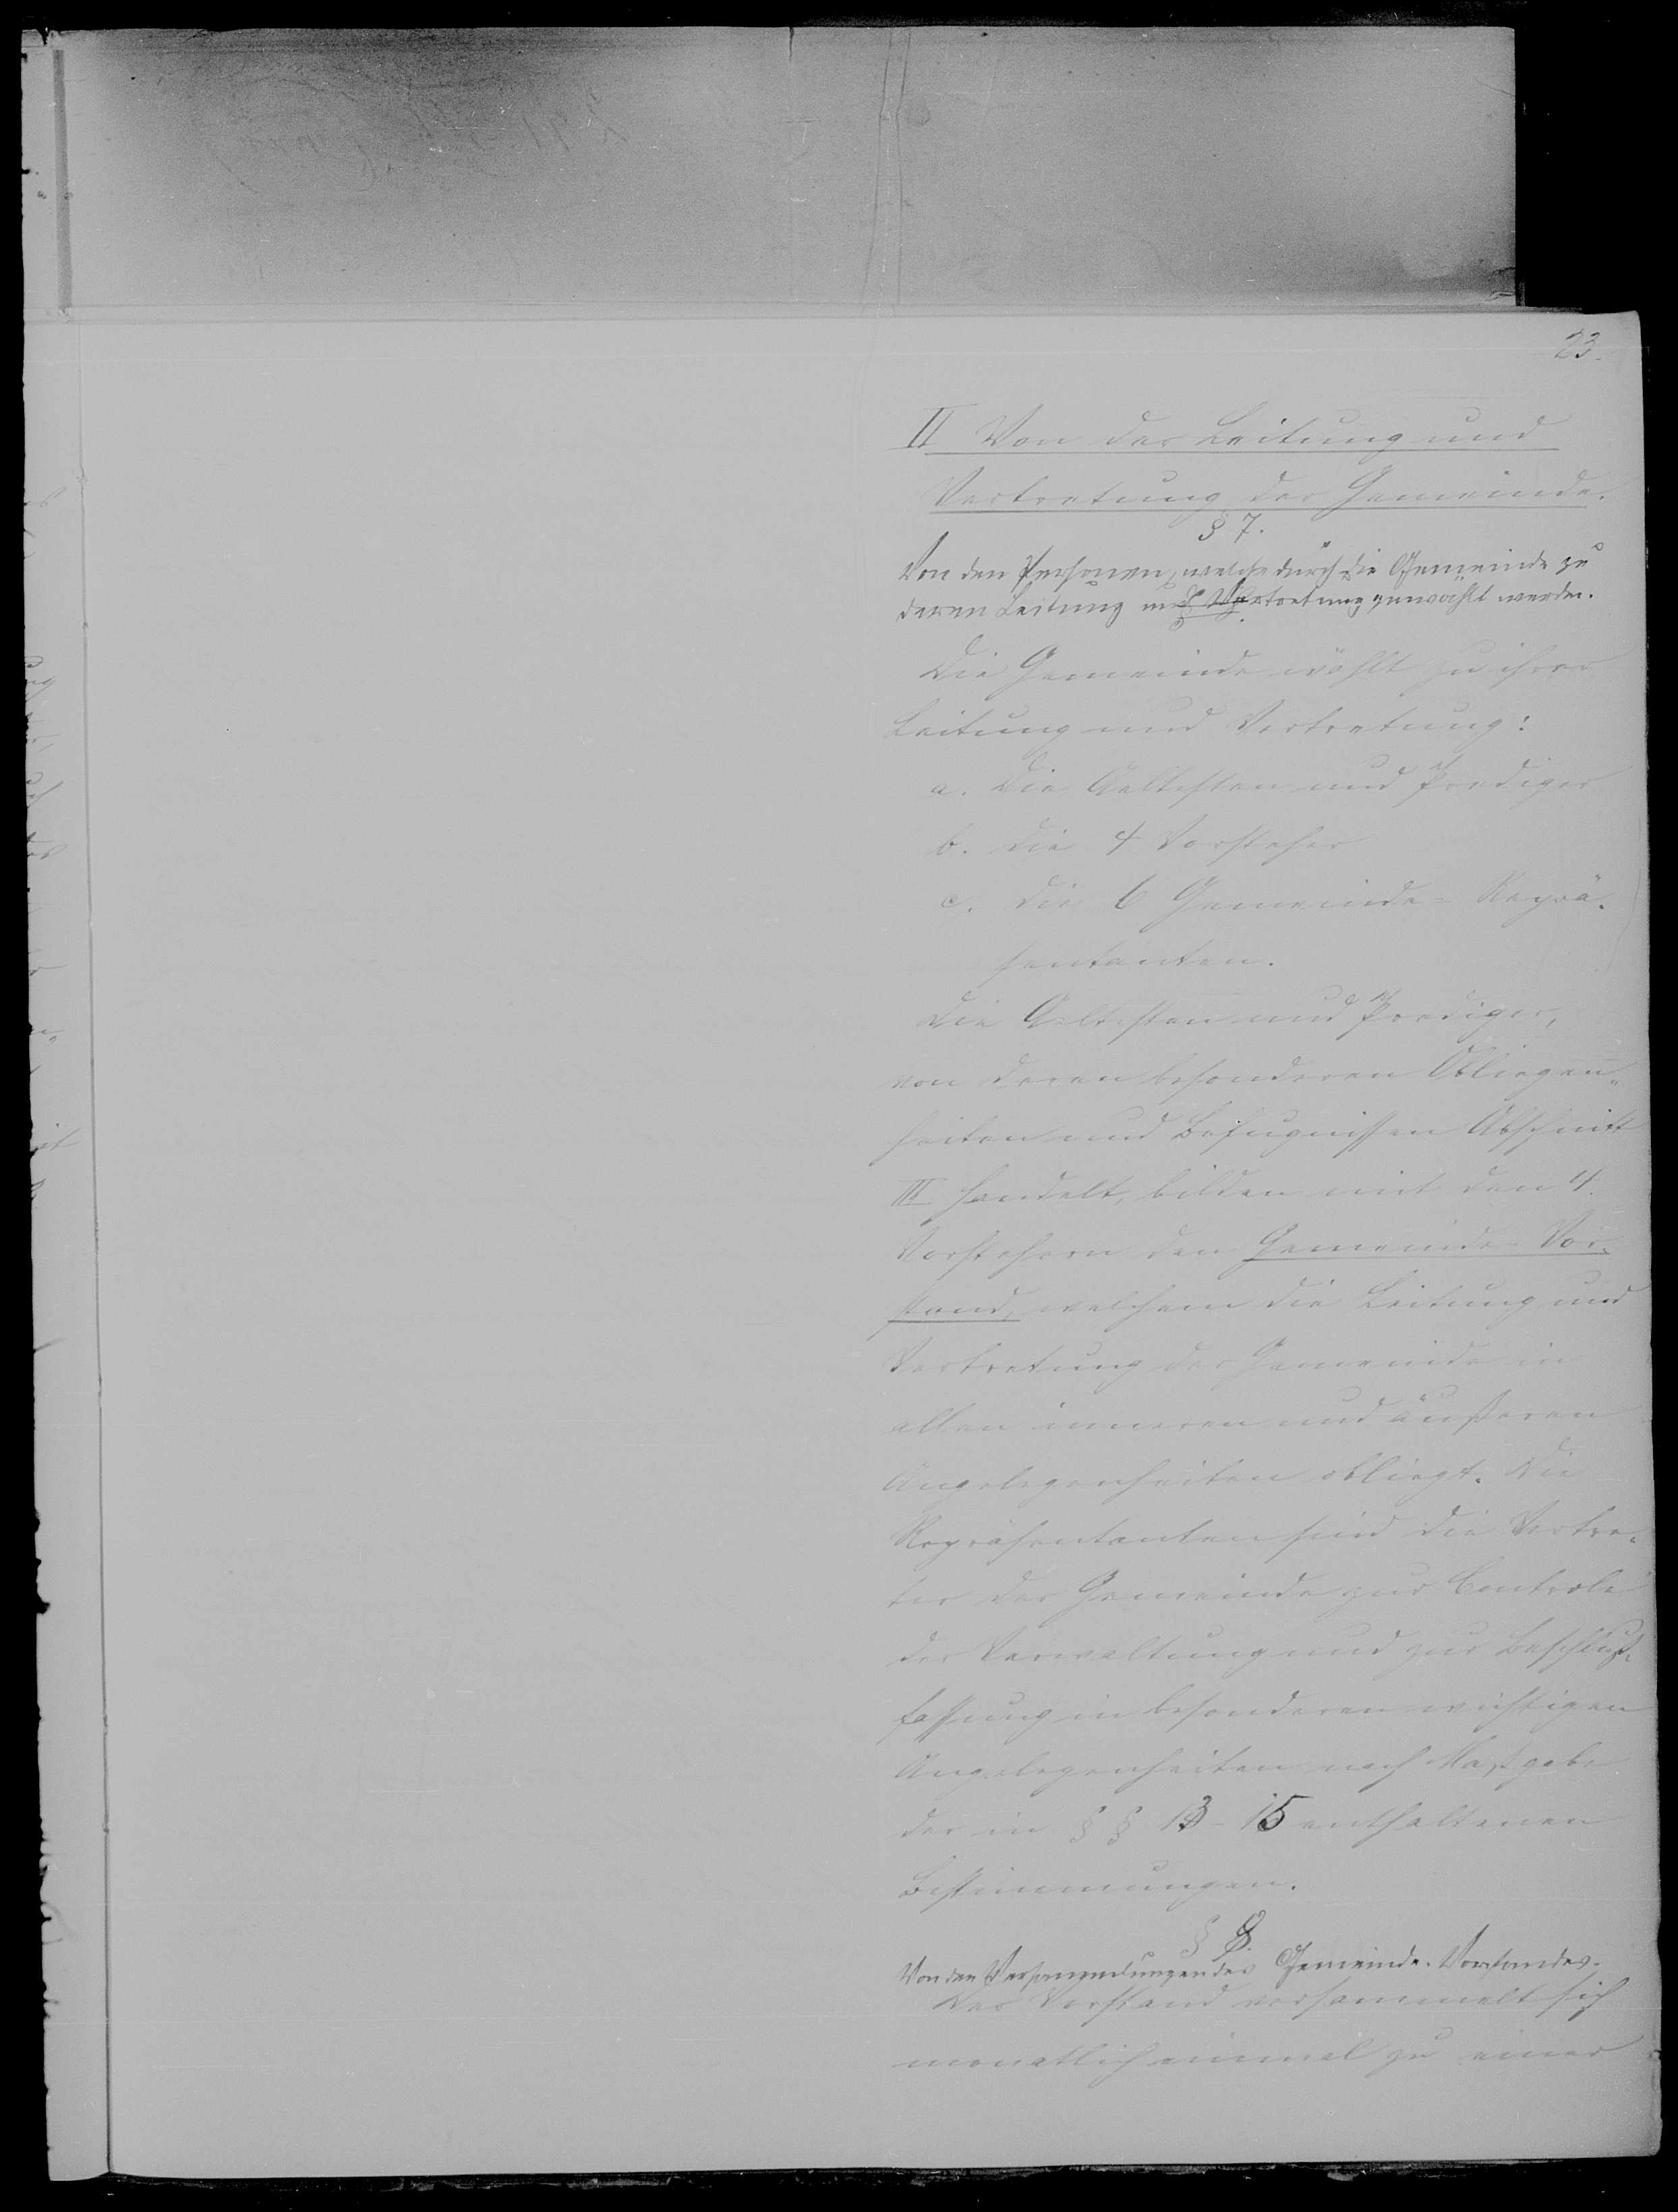 23.
II Von der Leitung und
Vertretung der Gemeinde.
§ 7.
Von den Personen, welche durch die Gemeinde zu
deren Leitung und Vertretung gewählt werden.
Die Gemeinde wählt zu ihrer
Leitung und Vertretung:
a. Die Aeltesten und Prediger
b. die 4 Vorsteher
c. die 6 Gemeinde-Reprä-
sentanten.
Die Aeltesten und Prediger,
von deren besonderen Obliegen-
heiten und Befugnissen Abschnitt
III handelt, bilden mit den 4
Vorstehern den Gemeinde-Vor-
stand, welchem die Leitung und
Vertretung der Gemeinde in
allen inneren und äußeren
Angelegenheiten obliegt. Die
Repräsentanten sind die Vertre-
ter der Gemeinde zur Controle
der Verwaltung und zur Beschluß-
fassung in besonderen wichtigen
Angelegenheiten nach Maßgabe
der in § § 13-15 enthaltenen
Bestimmungen.
§ 8.
Von den Versammlungen des Gemeinde-Vorstandes.
Der Vorstand versammelt sich
monatlich einmal zu einer